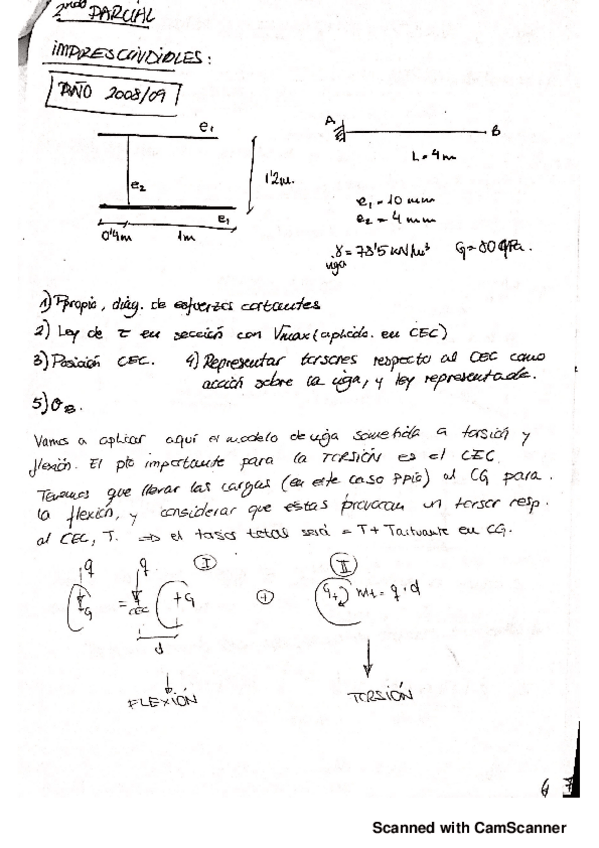 2ndo PARCIAL
IMPRESCINDIBLES:
AÑO 2008/09
e1
A
B
L=4m
1'2m.
e2
e1 = 10 mm
e2 = 4 mm
e1
0'4m
1m
γ = 78'5 kN/m³
G=80 GPa.
viga
1) Ppropio, diág. de esfuerzos cortantes
2) Ley de τ en sección con Vmax (aplicada en CEC)
3) Posición CEC.
4) Representar torsores respecto al CEC como
acción sobre la viga, y ley representada.
5) θB.
Vamos a aplicar aquí el modelo de viga sometida a torsión y
flexión. El pto importante para la TORSIÓN es el CEC.
Tenemos que llevar las cargas (en este caso ppio) al CG para
la flexión, y considerar que estas provocan un torsor resp.
al CEC, T. ⇒ el torsor total será = T + Tactuante en CG.
q
q
I
II
G
=
CEC
+G
+
G+
mt = q·d
d
FLEXIÓN
TORSIÓN
Scanned with CamScanner